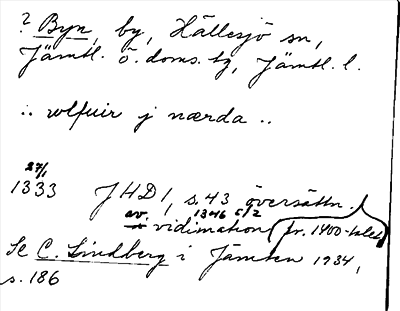 ? Byn, by, Hällesjö sn,
Jämtl. ö. doms. tg, Jämtl. l.
.. ulfuir j nærda ..
27/1
1333 JHD 1, s. 43 översättn.
av 1346 6/2
vidimation (fr. 1400-talet)
Se C. Lindberg i Jämten 1934,
s. 186